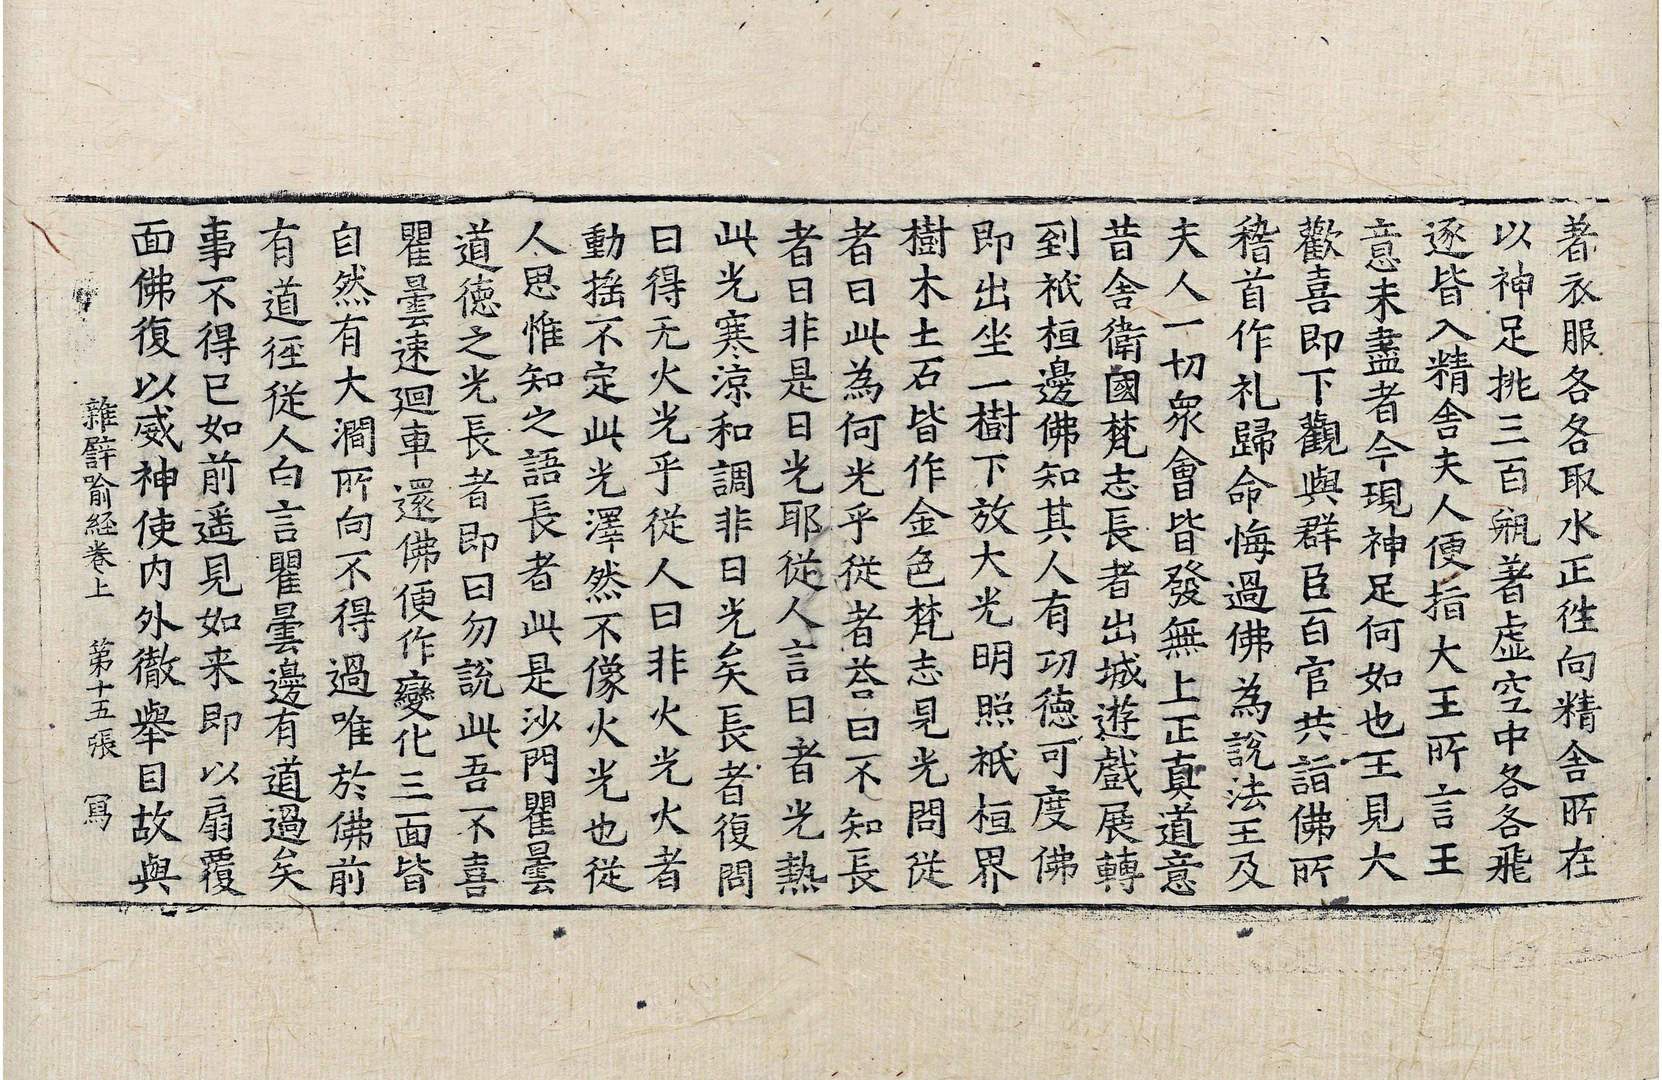 著衣服各各取水正住向精舍所在
以神足挑三百瓶著虛空中各各飛
逐皆入精舍夫人便指大王所言王
意未盡者今現神足何如也王見大
歡喜即下觀與群臣百官共詣佛所
稽首作礼歸命悔過佛為說法王及
夫人一切衆會皆發無上正真道意
昔舍衛國梵志長者出城遊戲展轉
到祇桓邊佛知其人有功德可度佛
即出坐一樹下放大光明照祇桓界
樹木土石皆作金色梵志見光問從
者曰此為何光乎從者荅曰不知長
者曰非是日光耶從人言曰者光熱
此光寒涼和調非日光矣長者復問
曰得无火光乎從人曰非火光火者
動搖不定此光澤然不像火光也從
人思惟知之語長者此是沙門瞿曇
道德之光長者即曰勿說此吾不喜
瞿曇速迴車還佛便作變化三面皆
自然有大澗所向不得過唯於佛前
有道徑從人白言瞿曇邊有道過矣
事不得已如前遥見如来即以扇覆
面佛復以威神使內外徹舉目故與
雜譬喻經卷上　第十五張　寫